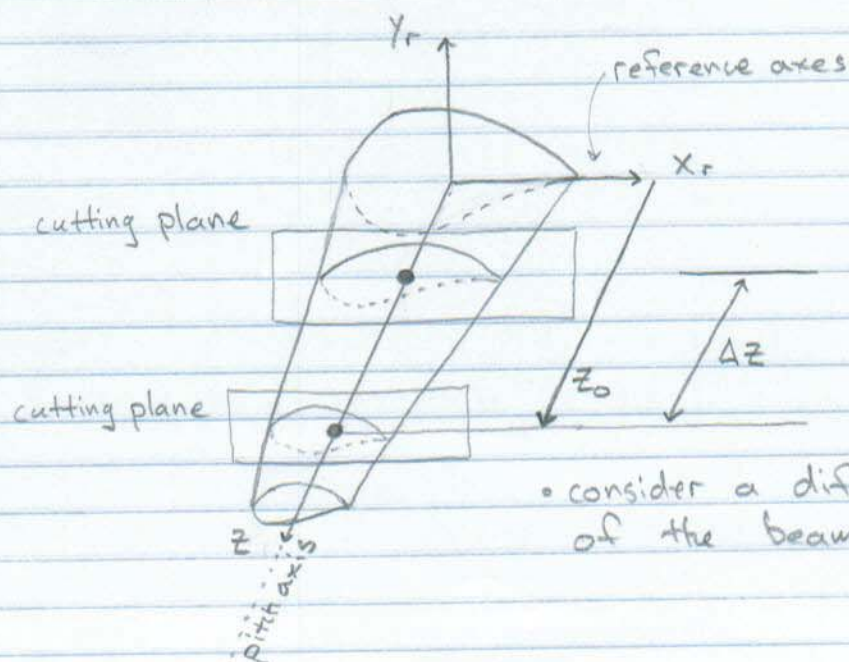 Yr
reference axes
Xr
cutting plane
ΔZ
Zo
cutting plane
• consider a dif
of the beaw
Z
pitch axis